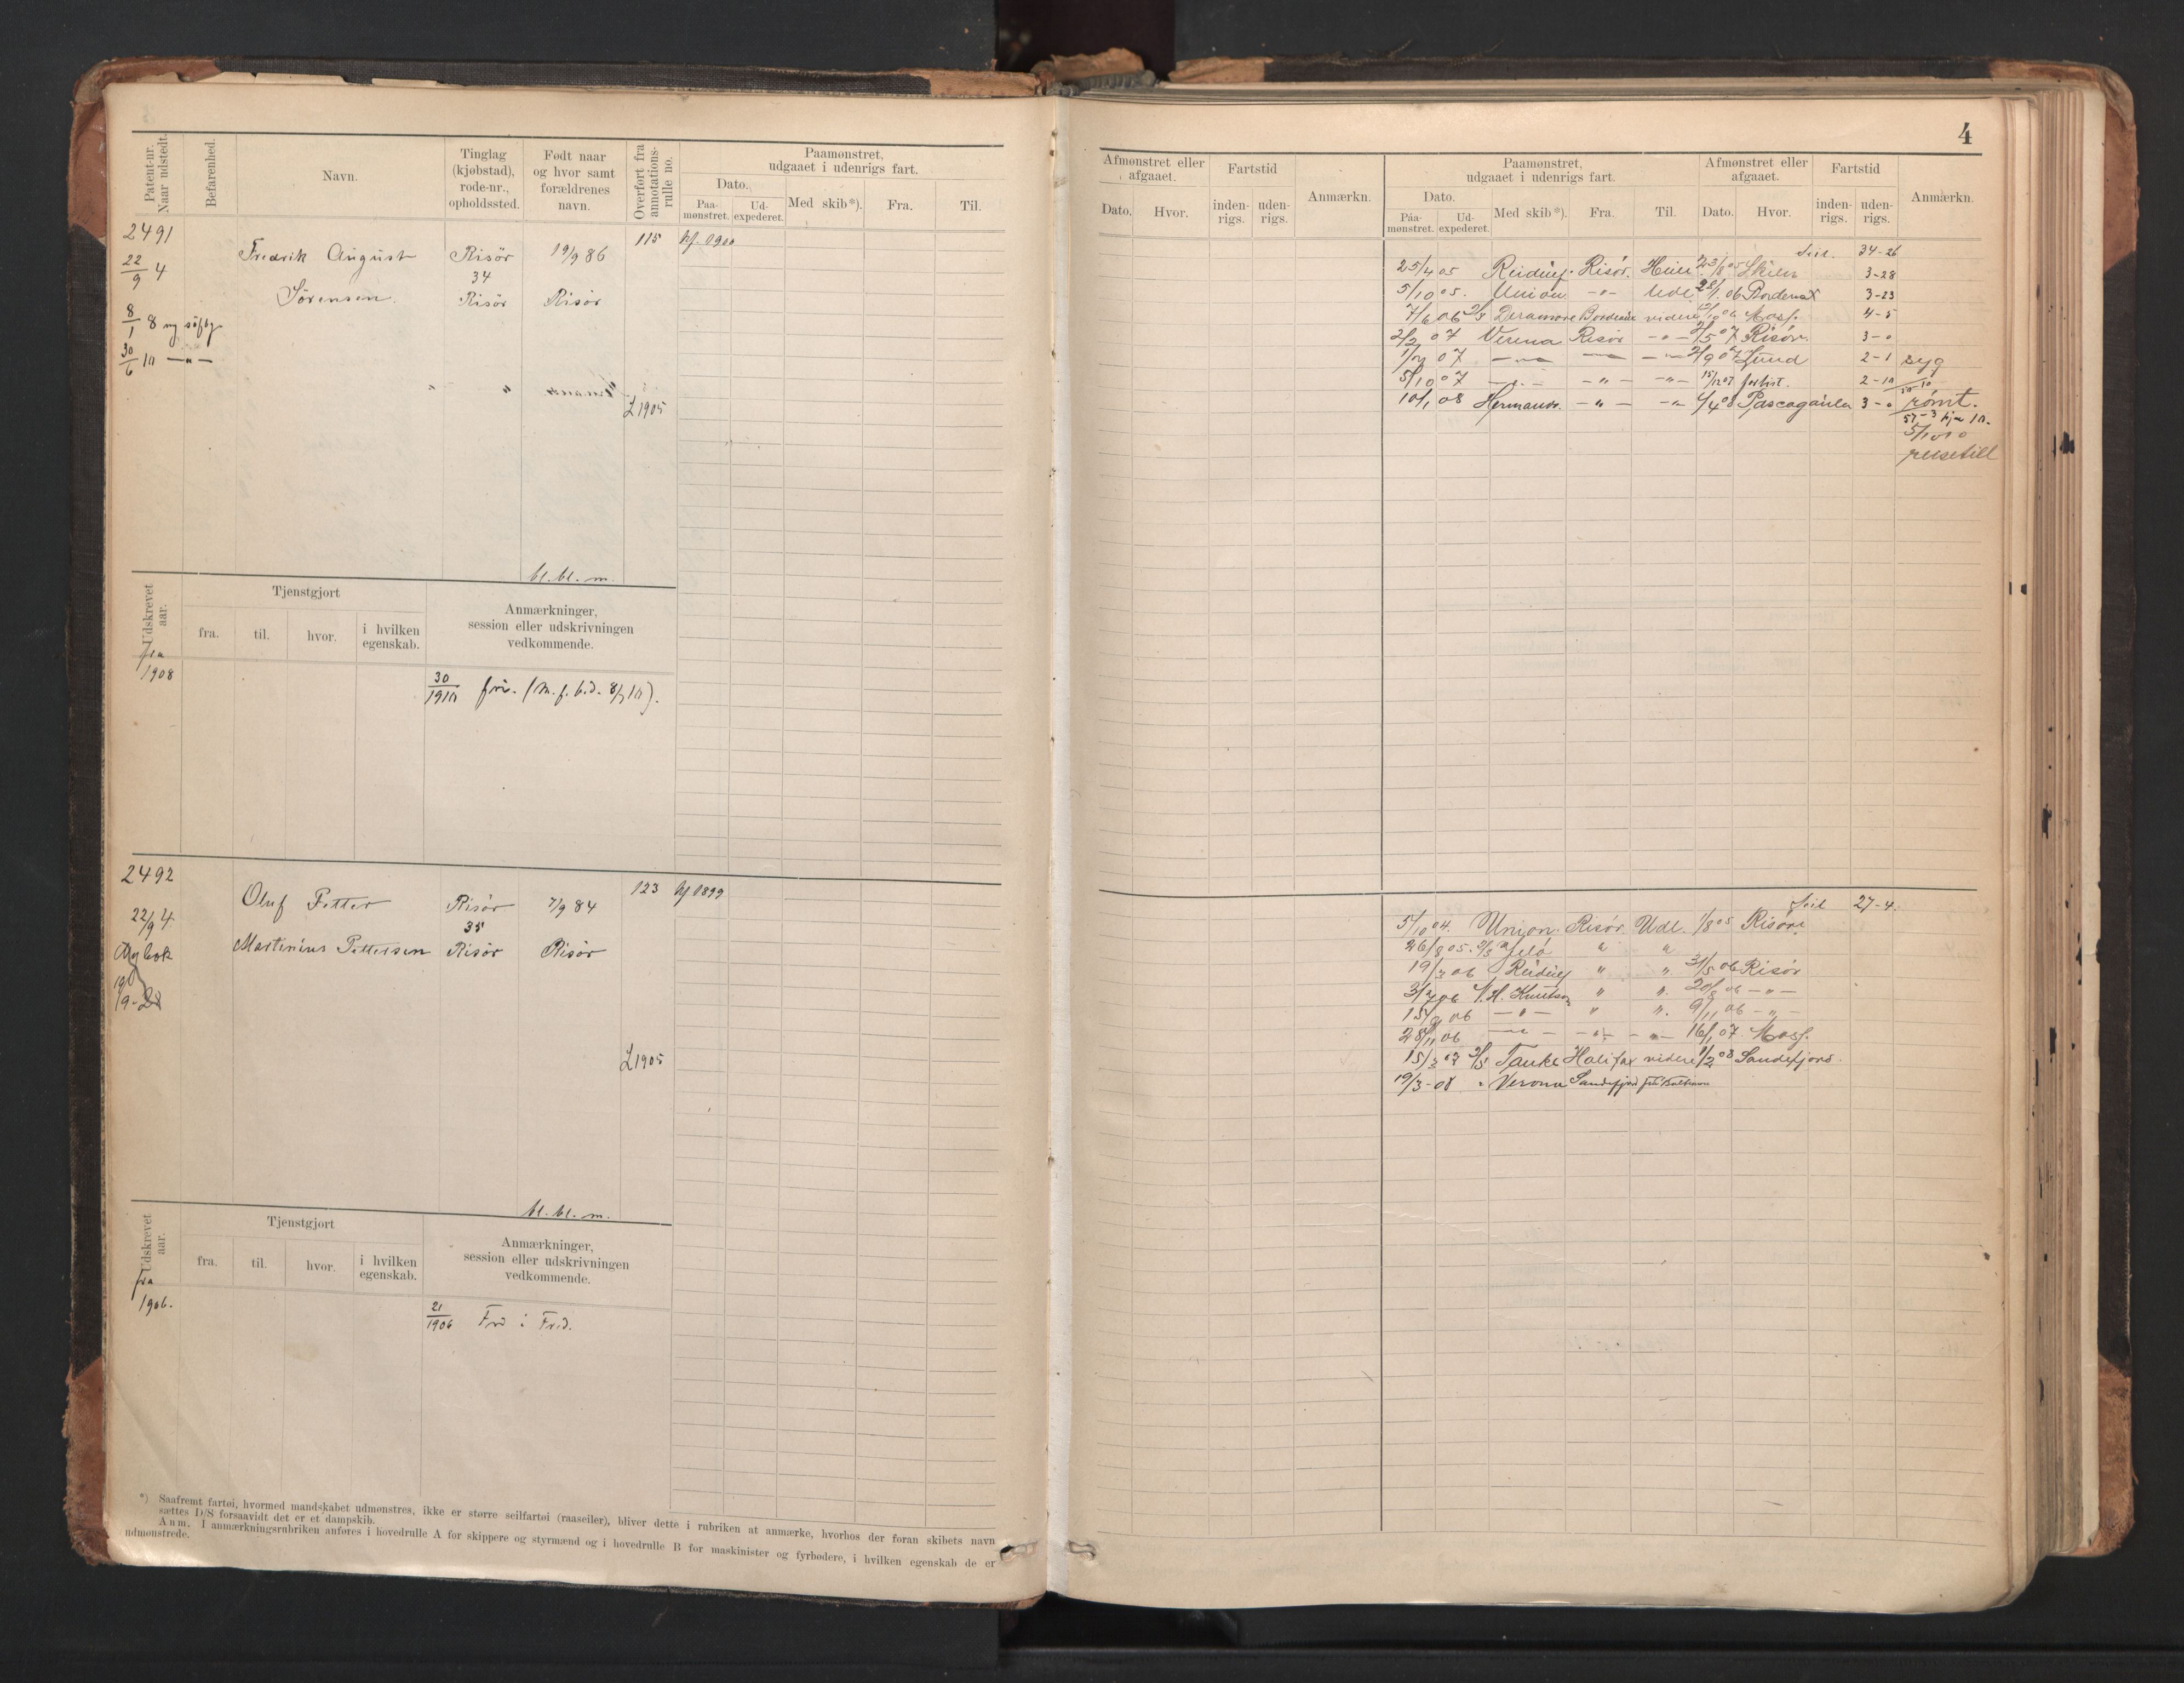 4
Patent-nr. Naar udstedt.
Befarenhed.
Navn.
Tinglag (kjøbstad), rode-nr., opholdssted.
Født naar og hvor samt forældrenes navn.
Overført fra annotations-rulle no.
Paamønstret, udgaaet i udenrigs fart.
Dato.
Paa-mønstret.
Ud-expederet.
Med skib*).
Fra.
Til.
2491
22/9 4
8/1 8 ny søfb.
30/6 10 —"—
Fredrik August
Sörensen.
Risör
34
Risör
19/9 86
Risör
115
1900
L 1905
bl. bl. m.
Udskrevet aar.
Tjenstgjort
fra.
til.
hvor.
i hvilken egenskab.
Anmærkninger, session eller udskrivningen vedkommende.
fra
1908
30/1910 fri. (M. f. b. d. 8/7 10).
2492
22/9 4
Ny bok
Oluf Petter
Martinius Pettersen
Risör
35
Risör
7/9 84
Risör
123
1899
L 1905
bl. bl. m.
Udskrevet aar.
Tjenstgjort
fra.
til.
hvor.
i hvilken egenskab.
Anmærkninger, session eller udskrivningen vedkommende.
fra
1906.
21/1906 Frd i Fred.
*) Saafremt fartøi, hvormed mandskabet udmønstres, ikke er større seilfartøi (raaseiler), bliver dette i rubriken at anmærke, hvorhos der foran skibets navn
sættes D/S forsaavidt det er et dampskib.
Anm. I anmærkningsrubriken anføres i hovedrulle A for skippere og styrmænd og i hovedrulle B for maskinister og fyrbødere, i hvilken egenskab de er
udmønstrede.
Afmønstret eller afgaaet.
Dato.
Hvor.
Fartstid
inden-rigs.
uden-rigs.
Anmærkn.
Paamønstret, udgaaet i udenrigs fart.
Dato.
Paa-mønstret.
Ud-expederet.
Med skib*).
Fra.
Til.
Afmønstret eller afgaaet.
Dato.
Hvor.
Fartstid
inden-rigs.
uden-rigs.
Anmærkn.
Seil. 34-26
25/4 05 Risör. 23/8 05 Skien 3-28
5/10 05. Union —"— Udl. 28/1 06 3-23
7/6 06 Deramore Bordeaux videre Mosf. 4-5
2/2 07 Verena Risör —"— 2/5 07 Risör. 3-0
07 —"— —"— —"— 2/9 07 Lund 2-1 syg
5/10 07 —"— —"— —"— 15/12 07 forlist. 2-10
10/1 08 Herman —"— —"— 4/4 08 Pascagoula 3-0 rømt.
57-3
5/10 10
reisetill
Seil 27-4.
5/10 04. Union. Risör. Udl. 1/8 05 Risör.
26/8 05. " "
19/3 06 Reidulf " " 31/5 06 Risör
06 H. Knutsen " " 20/8 06 —"—
15/9 06 —"— " " 9/11 06 —"—
28/11 06 —"— —"— —"— 16/1 07 Mosf.
15/3 07 Tanke Halifax videre 1/2 08 Sandefjord.
19/3-08 Verona Sandefjord